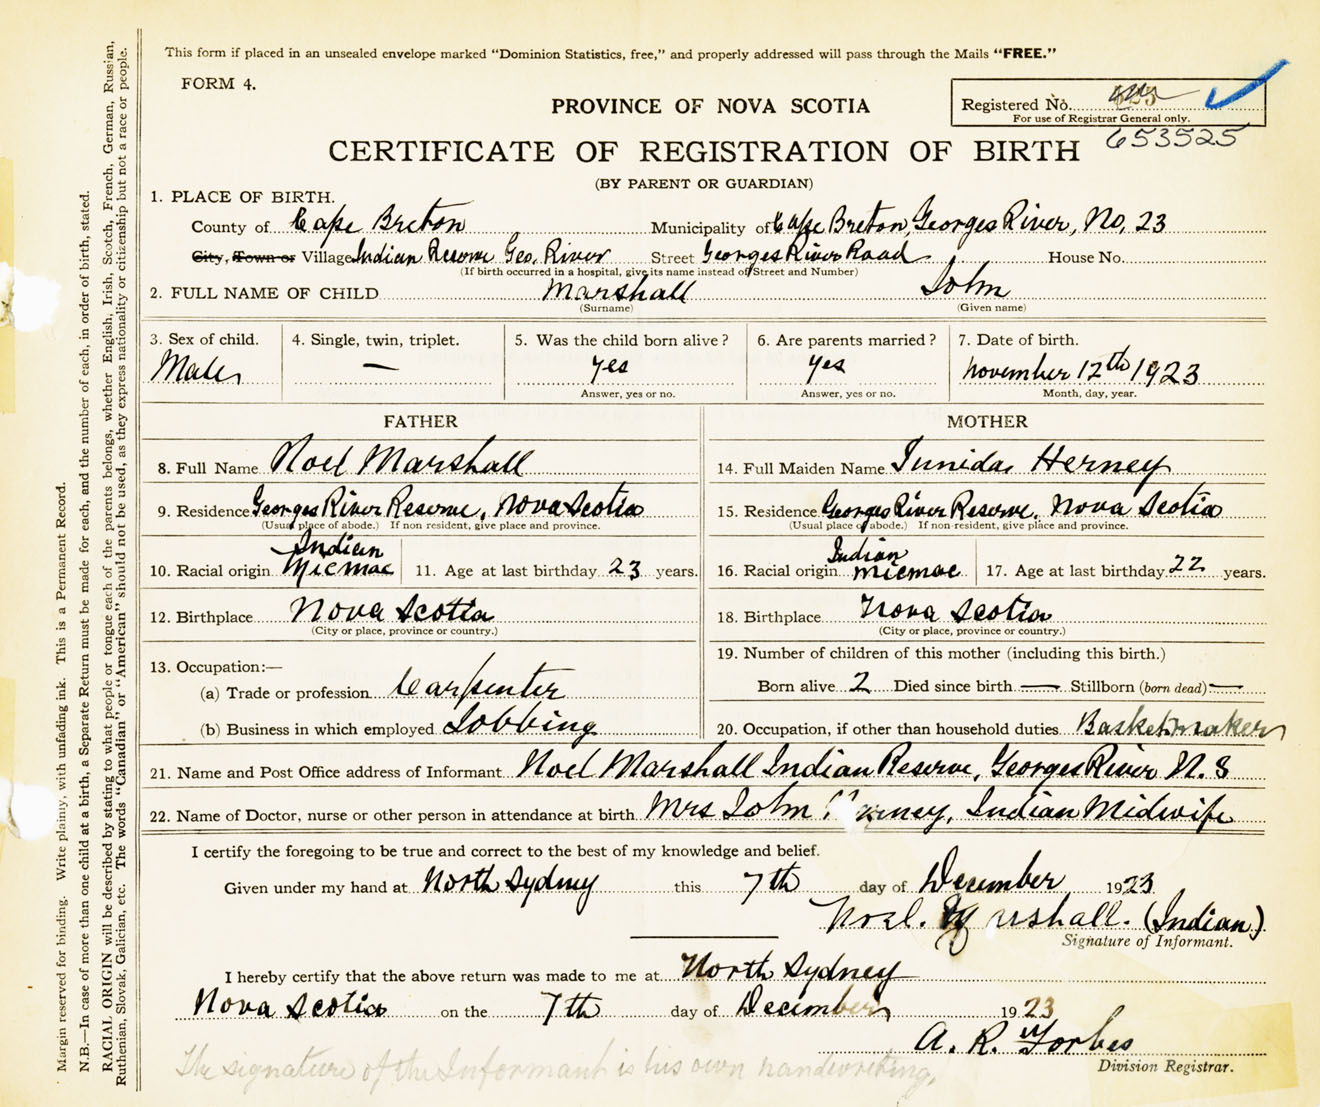 This form if placed in an unsealed envelope marked "Dominion Statistics, free," and properly addressed will pass through the Mails "FREE."
FORM 4.
PROVINCE OF NOVA SCOTIA
Registered No.
For use of Registrar General only.
653525
CERTIFICATE OF REGISTRATION OF BIRTH
(BY PARENT OR GUARDIAN)
1. PLACE OF BIRTH.
County of Cape Breton Municipality of Cape Breton, Georges River, No, 23
City, Town or Village Indian Reserve Geo. River Street Georges River Road House No.
(If birth occurred in a hospital, give its name instead of Street and Number)
2. FULL NAME OF CHILD Marshall John
(Surname) (Given name)
3. Sex of child. 4. Single, twin, triplet. 5. Was the child born alive? 6. Are parents married? 7. Date of birth.
Male — yes yes November 12th 1923
Answer, yes or no. Answer, yes or no. Month, day, year.
FATHER MOTHER
8. Full Name Noel Marshall 14. Full Maiden Name Herney
9. Residence Georges River Reserve, Nova Scotia 15. Residence Georges River Reserve, Nova Scotia
(Usual place of abode.) If non resident, give place and province. (Usual place of abode.) If non-resident, give place and province.
Indian Indian
10. Racial origin Micmac 11. Age at last birthday 23 years. 16. Racial origin Micmac 17. Age at last birthday 22 years.
12. Birthplace Nova Scotia 18. Birthplace Nova Scotia
(City or place, province or country.) (City or place, province or country.)
13. Occupation:— 19. Number of children of this mother (including this birth.)
(a) Trade or profession Carpenter Born alive 2 Died since birth — Stillborn (born dead) —
(b) Business in which employed Jobbing 20. Occupation, if other than household duties Basket maker
21. Name and Post Office address of Informant Noel Marshall Indian Reserve, Georges River N. S
22. Name of Doctor, nurse or other person in attendance at birth Mrs John Indian Midwife
I certify the foregoing to be true and correct to the best of my knowledge and belief.
Given under my hand at North Sydney this 7th day of December 1923
Noel. Marshall. (Indian)
Signature of Informant.
I hereby certify that the above return was made to me at North Sydney
Nova Scotia on the 7th day of December 1923
A. R. Forbes
Division Registrar.
The signature of the Informant is his own handwriting,
Margin reserved for binding. Write plainly, with unfading ink. This is a Permanent Record.
N.B.—In case of more than one child at a birth, a Separate Return must be made for each, and the number of each, in order of birth, stated.
RACIAL ORIGIN will be described by stating to what people or tongue each of the parents belongs, whether English, Irish, Scotch, French, German, Russian,
Ruthenian, Slovak, Galician, etc. The words "Canadian" or "American" should not be used, as they express nationality or citizenship but not a race or people.